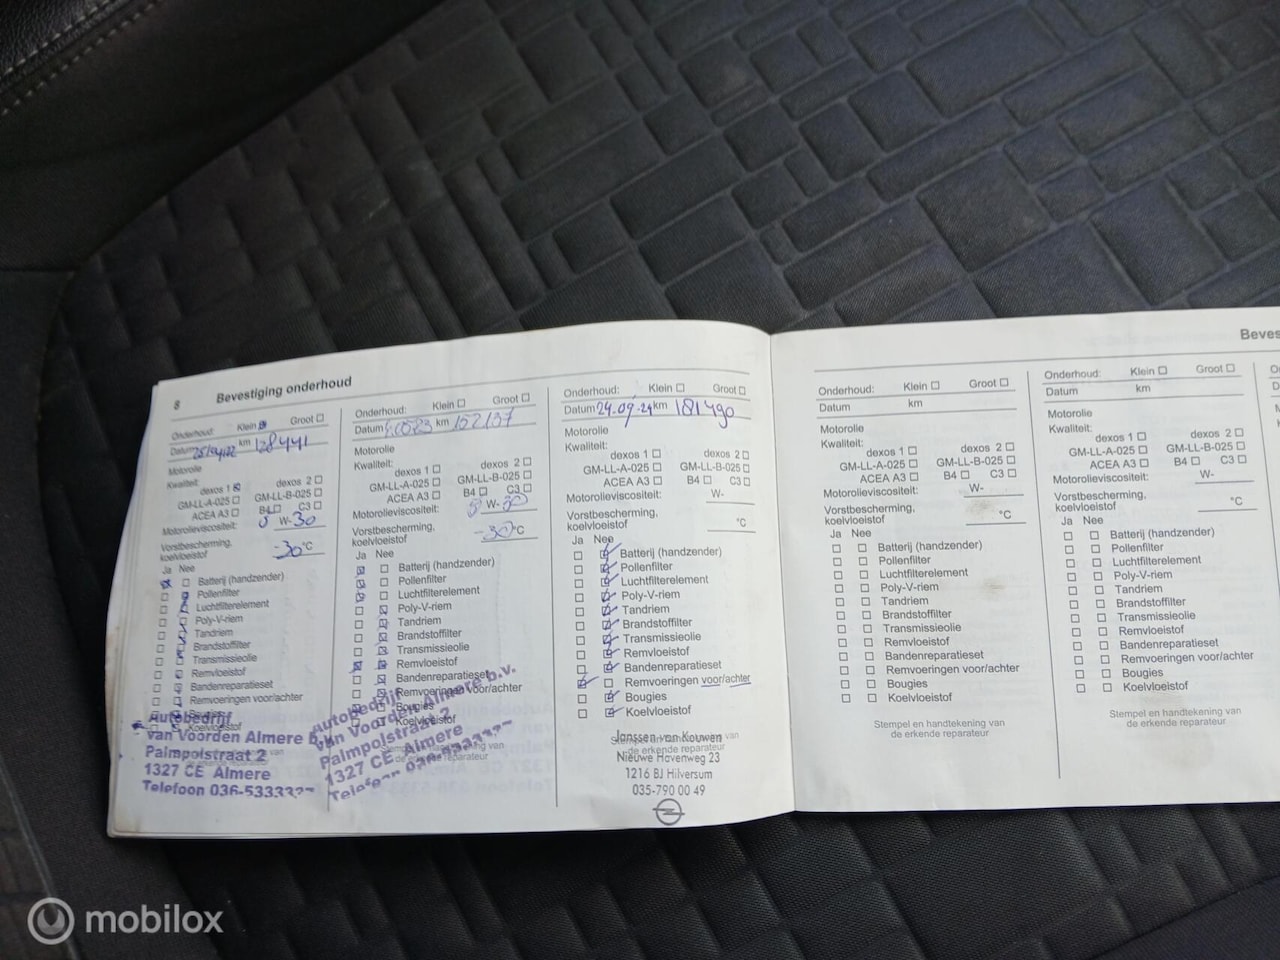 8 Bevestiging onderhoud
Onderhoud: Klein Groot
Datum km 128441
Motorolie
Kwaliteit:
dexos 1 dexos 2
GM-LL-A-025 GM-LL-B-025
ACEA A3 B4 C3
Motorolieviscositeit: 5 W-30
Vorstbescherming,
koelvloeistof -30 °C
Ja Nee
Batterij (handzender)
Pollenfilter
Luchtfilterelement
Poly-V-riem
Tandriem
Brandstoffilter
Transmissieolie
Remvloeistof
Bandenreparatieset
Remvoeringen voor/achter
Bougies
Koelvloeistof
Autobedrijf
van Voorden Almere b.v.
Palmpolstraat 2
1327 CE Almere
Telefoon 036-5333
Onderhoud: Klein Groot
Datum km 152137
Motorolie
Kwaliteit:
dexos 1 dexos 2
GM-LL-A-025 GM-LL-B-025
ACEA A3 B4 C3
Motorolieviscositeit: 5 W-30
Vorstbescherming,
koelvloeistof -30 °C
Ja Nee
Batterij (handzender)
Pollenfilter
Luchtfilterelement
Poly-V-riem
Tandriem
Brandstoffilter
Transmissieolie
Remvloeistof
Bandenreparatieset
Remvoeringen voor/achter
Bougies
Koelvloeistof
Autobedrijf
van Voorden Almere b.v.
Palmpolstraat 2
1327 CE Almere
Onderhoud: Klein Groot
Datum 24.09.24 km 181490
Motorolie
Kwaliteit:
dexos 1 dexos 2
GM-LL-A-025 GM-LL-B-025
ACEA A3 B4 C3
Motorolieviscositeit: W-
Vorstbescherming,
koelvloeistof °C
Ja Nee
Batterij (handzender)
Pollenfilter
Luchtfilterelement
Poly-V-riem
Tandriem
Brandstoffilter
Transmissieolie
Remvloeistof
Bandenreparatieset
Remvoeringen voor/achter
Bougies
Koelvloeistof
Stempel en handtekening van
de erkende reparateur
Janssen van Kouwen
Nieuwe Havenweg 23
1216 BJ Hilversum
035-790 00 49
Onderhoud: Klein Groot
Datum km
Motorolie
Kwaliteit:
dexos 1 dexos 2
GM-LL-A-025 GM-LL-B-025
ACEA A3 B4 C3
Motorolieviscositeit: W-
Vorstbescherming,
koelvloeistof °C
Ja Nee
Batterij (handzender)
Pollenfilter
Luchtfilterelement
Poly-V-riem
Tandriem
Brandstoffilter
Transmissieolie
Remvloeistof
Bandenreparatieset
Remvoeringen voor/achter
Bougies
Koelvloeistof
Stempel en handtekening van
de erkende reparateur
Beves
Onderhoud: Klein Groot
Datum km
Motorolie
Kwaliteit:
dexos 1 dexos 2
GM-LL-A-025 GM-LL-B-025
ACEA A3 B4 C3
Motorolieviscositeit: W-
Vorstbescherming,
koelvloeistof °C
Ja Nee
Batterij (handzender)
Pollenfilter
Luchtfilterelement
Poly-V-riem
Tandriem
Brandstoffilter
Transmissieolie
Remvloeistof
Bandenreparatieset
Remvoeringen voor/achter
Bougies
Koelvloeistof
Stempel en handtekening van
de erkende reparateur
mobilox